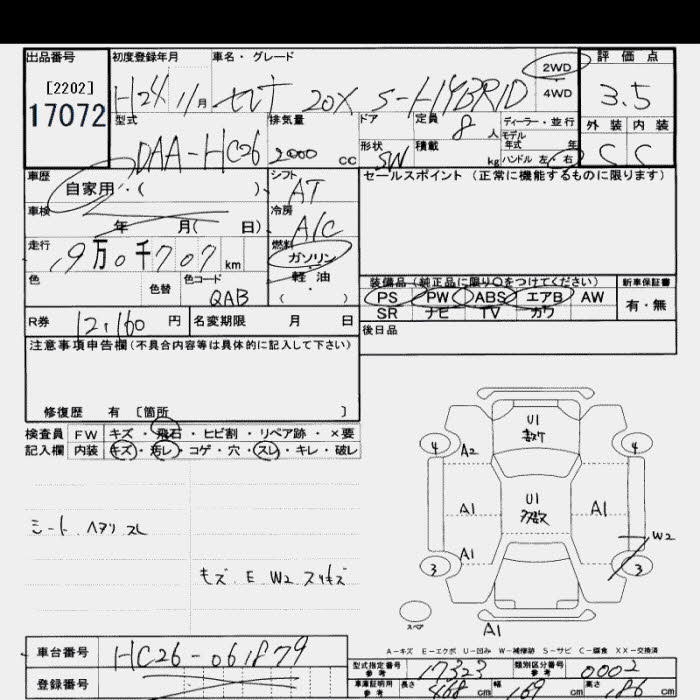 出品番号 初度登録年月 車名・グレード 2WD 評価点
[2202] H24 11月 セレナ 20X S-HYBRID 4WD 3.5
17072 型式 排気量 ドア 定員 8 人 ディーラー・並行 外装 内装
モデル年式 年
DAA-HC26 2000 cc 形状 SW 積載 kg ハンドル 左・右 C C
車歴 シフト セールスポイント(正常に機能するものに限ります)
自家用・( ) AT
車検 冷房
年 月( 日) A/C
走行 燃料
9万0千707 km ガソリン
色 色替 色コード 軽・油 装備品(純正品に限り○をつけてください) 新車保証書
QAB ( ) PS PW ABS エアB AW 有・無
SR ナビ TV カワ
R券 12,160 円 名変期限 月 日 後日品
注意事項申告欄(不具合内容等は具体的に記入して下さい)
修復歴 有 [箇所 ]
検査員 FW キズ・飛石・ヒビ割・リペア跡・×要
記入欄 内装 キズ・汚レ・コゲ・穴・スレ・キレ・破レ
U1
4 4
A2
A1 U1 多数 A1
W2
A1
3 3
シート ヘタリ スレ
キズ E W2 スリキズ
スペア
A1
A-キズ E-エクボ U-凹み W-補修跡 S-サビ C-腐食 XX-交換済
車台番号 HC26-061879
型式指定番号 参考 17323 類別区分番号 参考 0002
登録番号
車庫証明用 参考 長さ 468 cm 幅 169 cm 高さ 186 cm